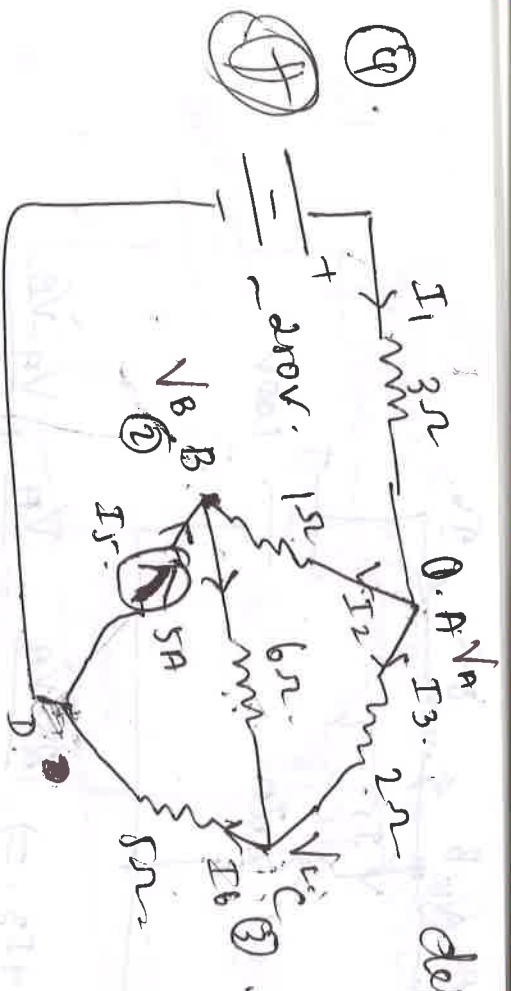 ④.
I1
3Ω
①.A VA
+
-
200V.
VB B
②
1Ω
I2
I3.
2Ω
6Ω.
I5.
5A
VC C
I6 ③
5Ω
D.
de